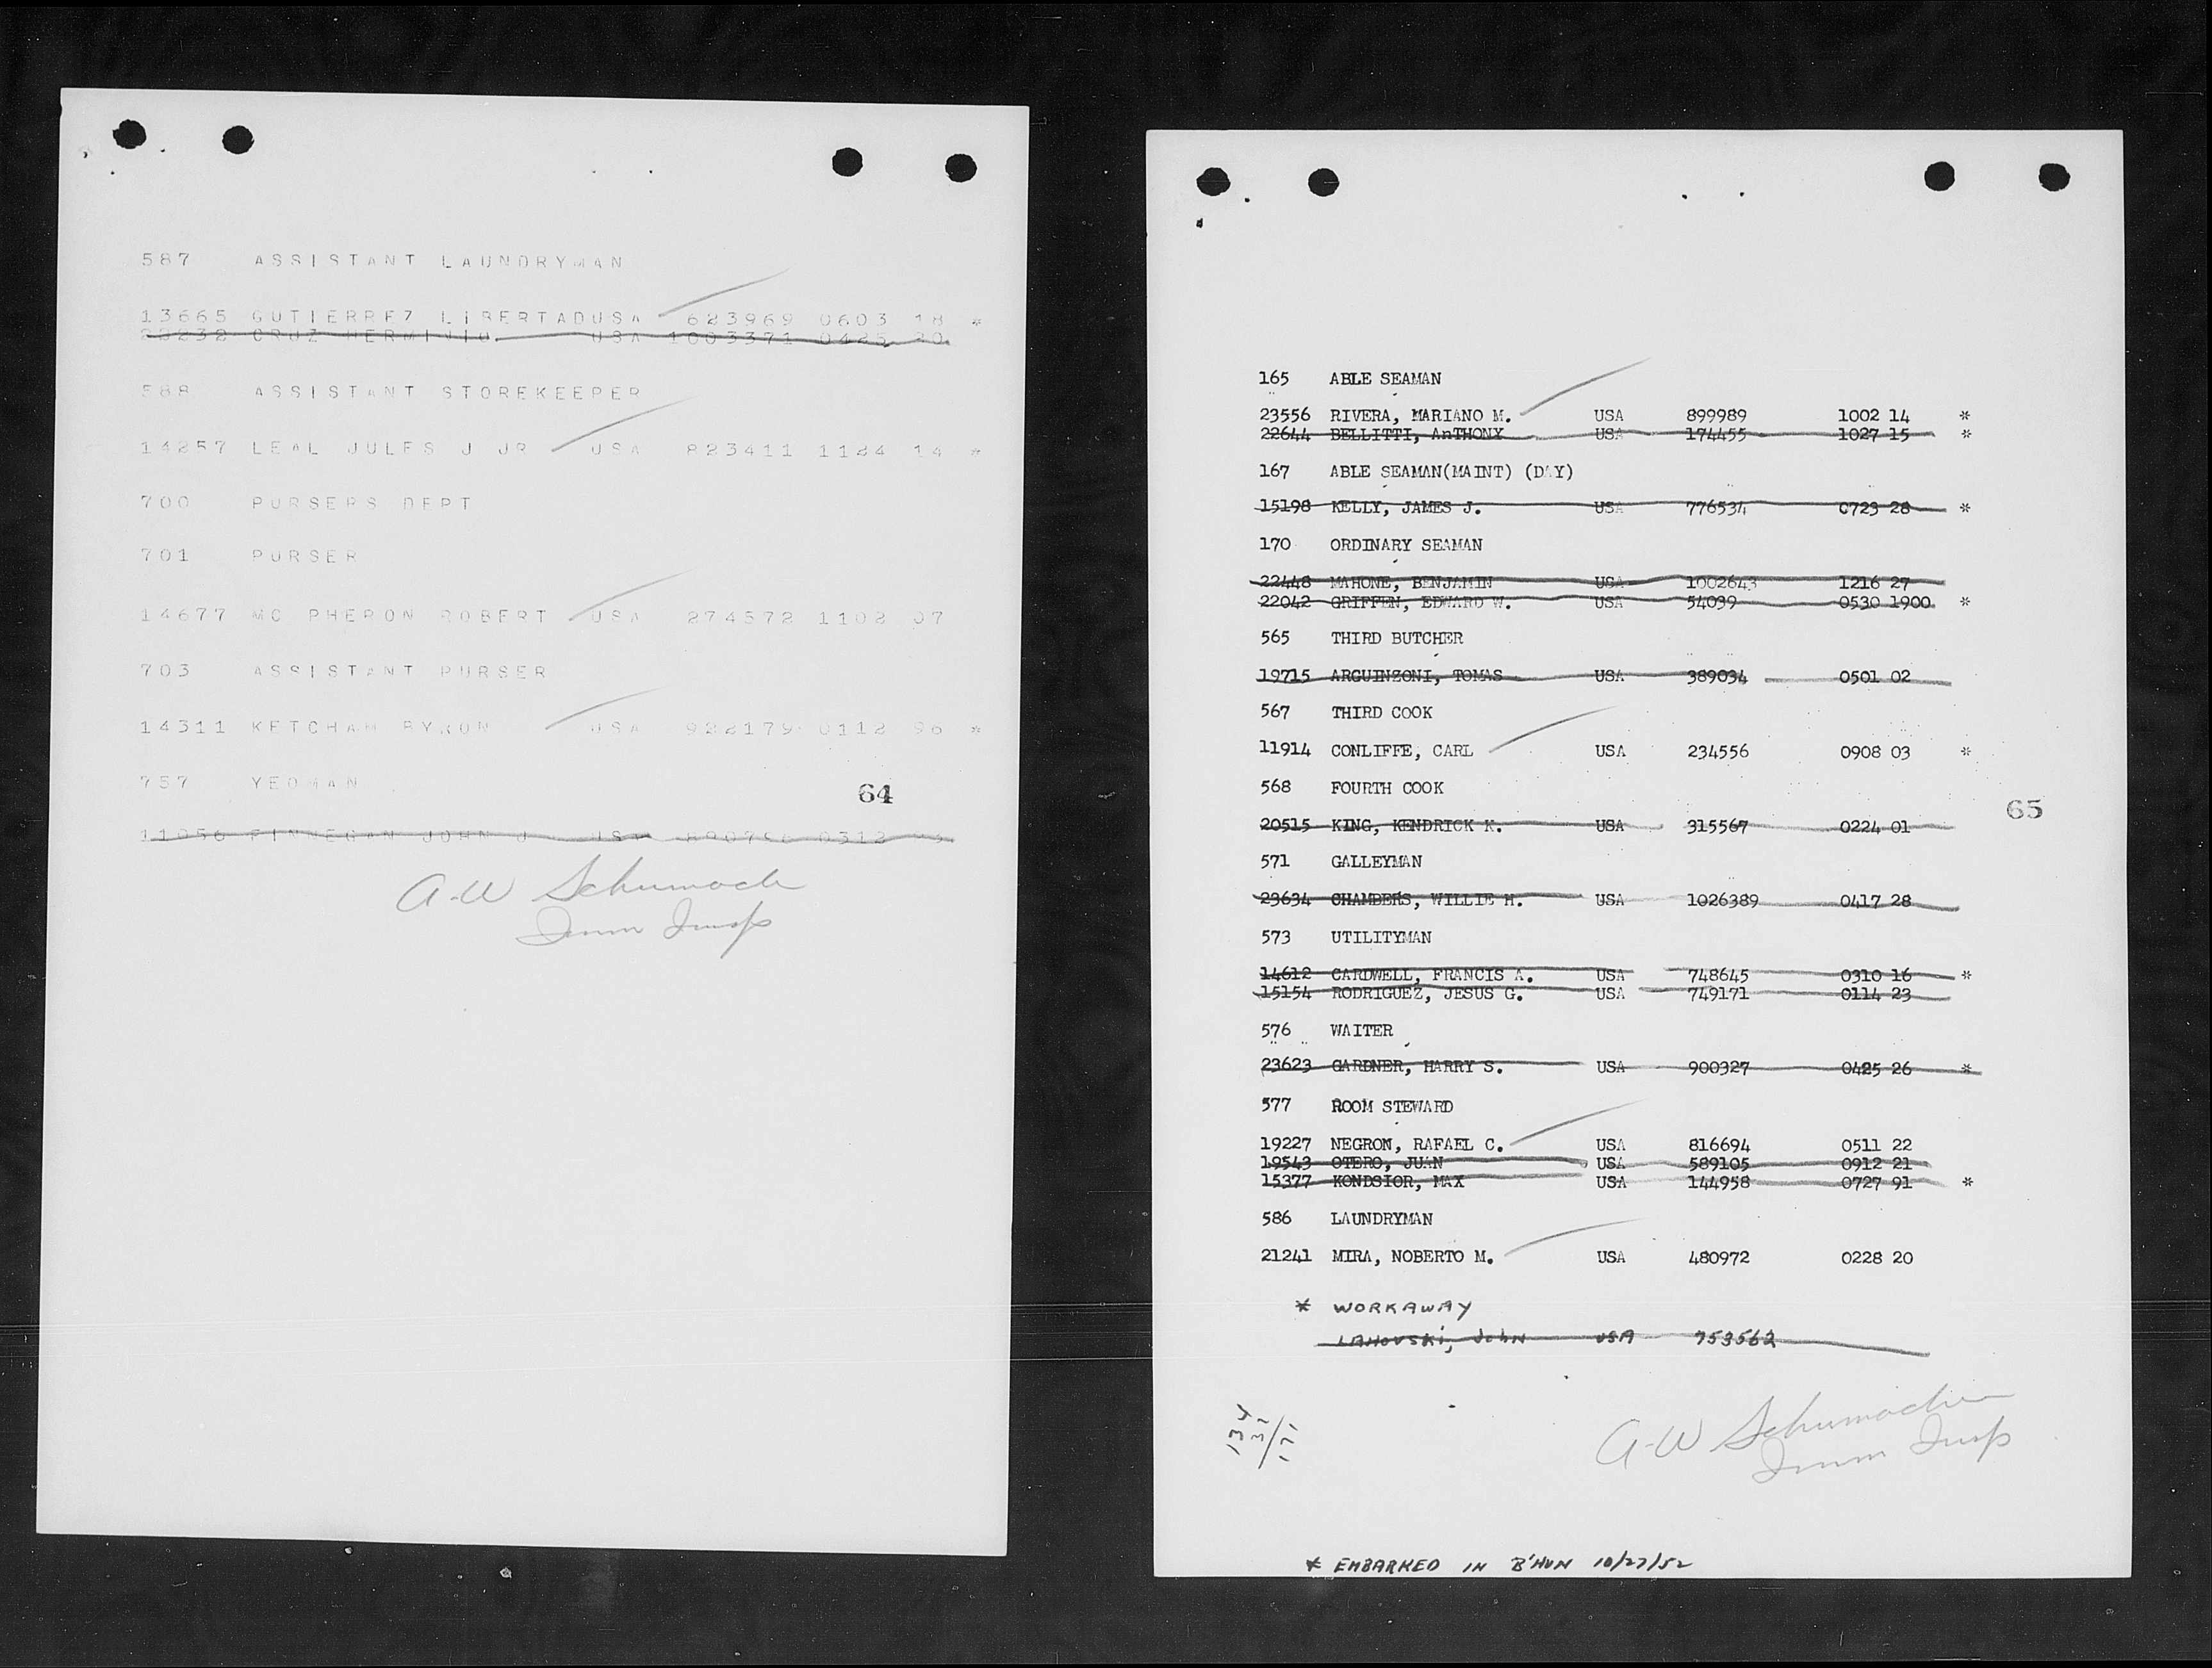 587 ASSISTANT LAUNDRYMAN
13665 GUTIERREZ LIBERTADUSA 623969 0603 18 *
23232 CRUZ HERMINIO USA 1003371 0425 20
588 ASSISTANT STOREKEEPER
14257 LEAL JULES J JR USA 823411 1124 14 *
700 PURSERS DEPT
701 PURSER
14677 MC PHERON ROBERT USA 274572 1102 07
703 ASSISTANT PURSER
14311 KETCHAM BYRON USA 922179 0112 96 *
757 YEOMAN
64
11056 FINNEGAN JOHN J USA 0312
A-W Schumach
Imm Insp
165 ABLE SEAMAN
23556 RIVERA, MARIANO M. USA 899989 1002 14 *
22644 BELLITTI, AnTHONY USA 174455 1027 15 *
167 ABLE SEAMAN(MAINT) (DAY)
15198 KELLY, JAMES J. USA 776534 0723 28 *
170 ORDINARY SEAMAN
22448 MAHONE, BENJAMIN USA 1002643 1216 27
22042 GRIFFEN, EDWARD W. USA 54039 0530 1900 *
565 THIRD BUTCHER
19715 ARGUINZONI, TOMAS USA 389034 0501 02
567 THIRD COOK
11914 CONLIFFE, CARL USA 234556 0908 03 *
568 FOURTH COOK
65
20515 KING, KENDRICK K. USA 315567 0224 01
571 GALLEYMAN
23634 CHAMBERS, WILLIE H. USA 1026389 0417 28
573 UTILITYMAN
14612 CARDWELL, FRANCIS A. USA 748645 0310 16 *
15154 RODRIGUEZ, JESUS G. USA 749171 0114 23
576 WAITER
23623 GARDNER, HARRY S. USA 900327 0425 26 *
577 ROOM STEWARD
19227 NEGRON, RAFAEL C. USA 816694 0511 22
19543 OTERO, JUAN USA 589105 0912 21
15377 KONDSIOR, MAX USA 144958 0727 91 *
586 LAUNDRYMAN
21241 MIRA, NOBERTO M. USA 480972 0228 20
* WORKAWAY
LAHOVSKi, John USA 753562
134
37
171
A-W Schumacher
Imm Insp
* EMBARKED IN B'HVN 10/27/52